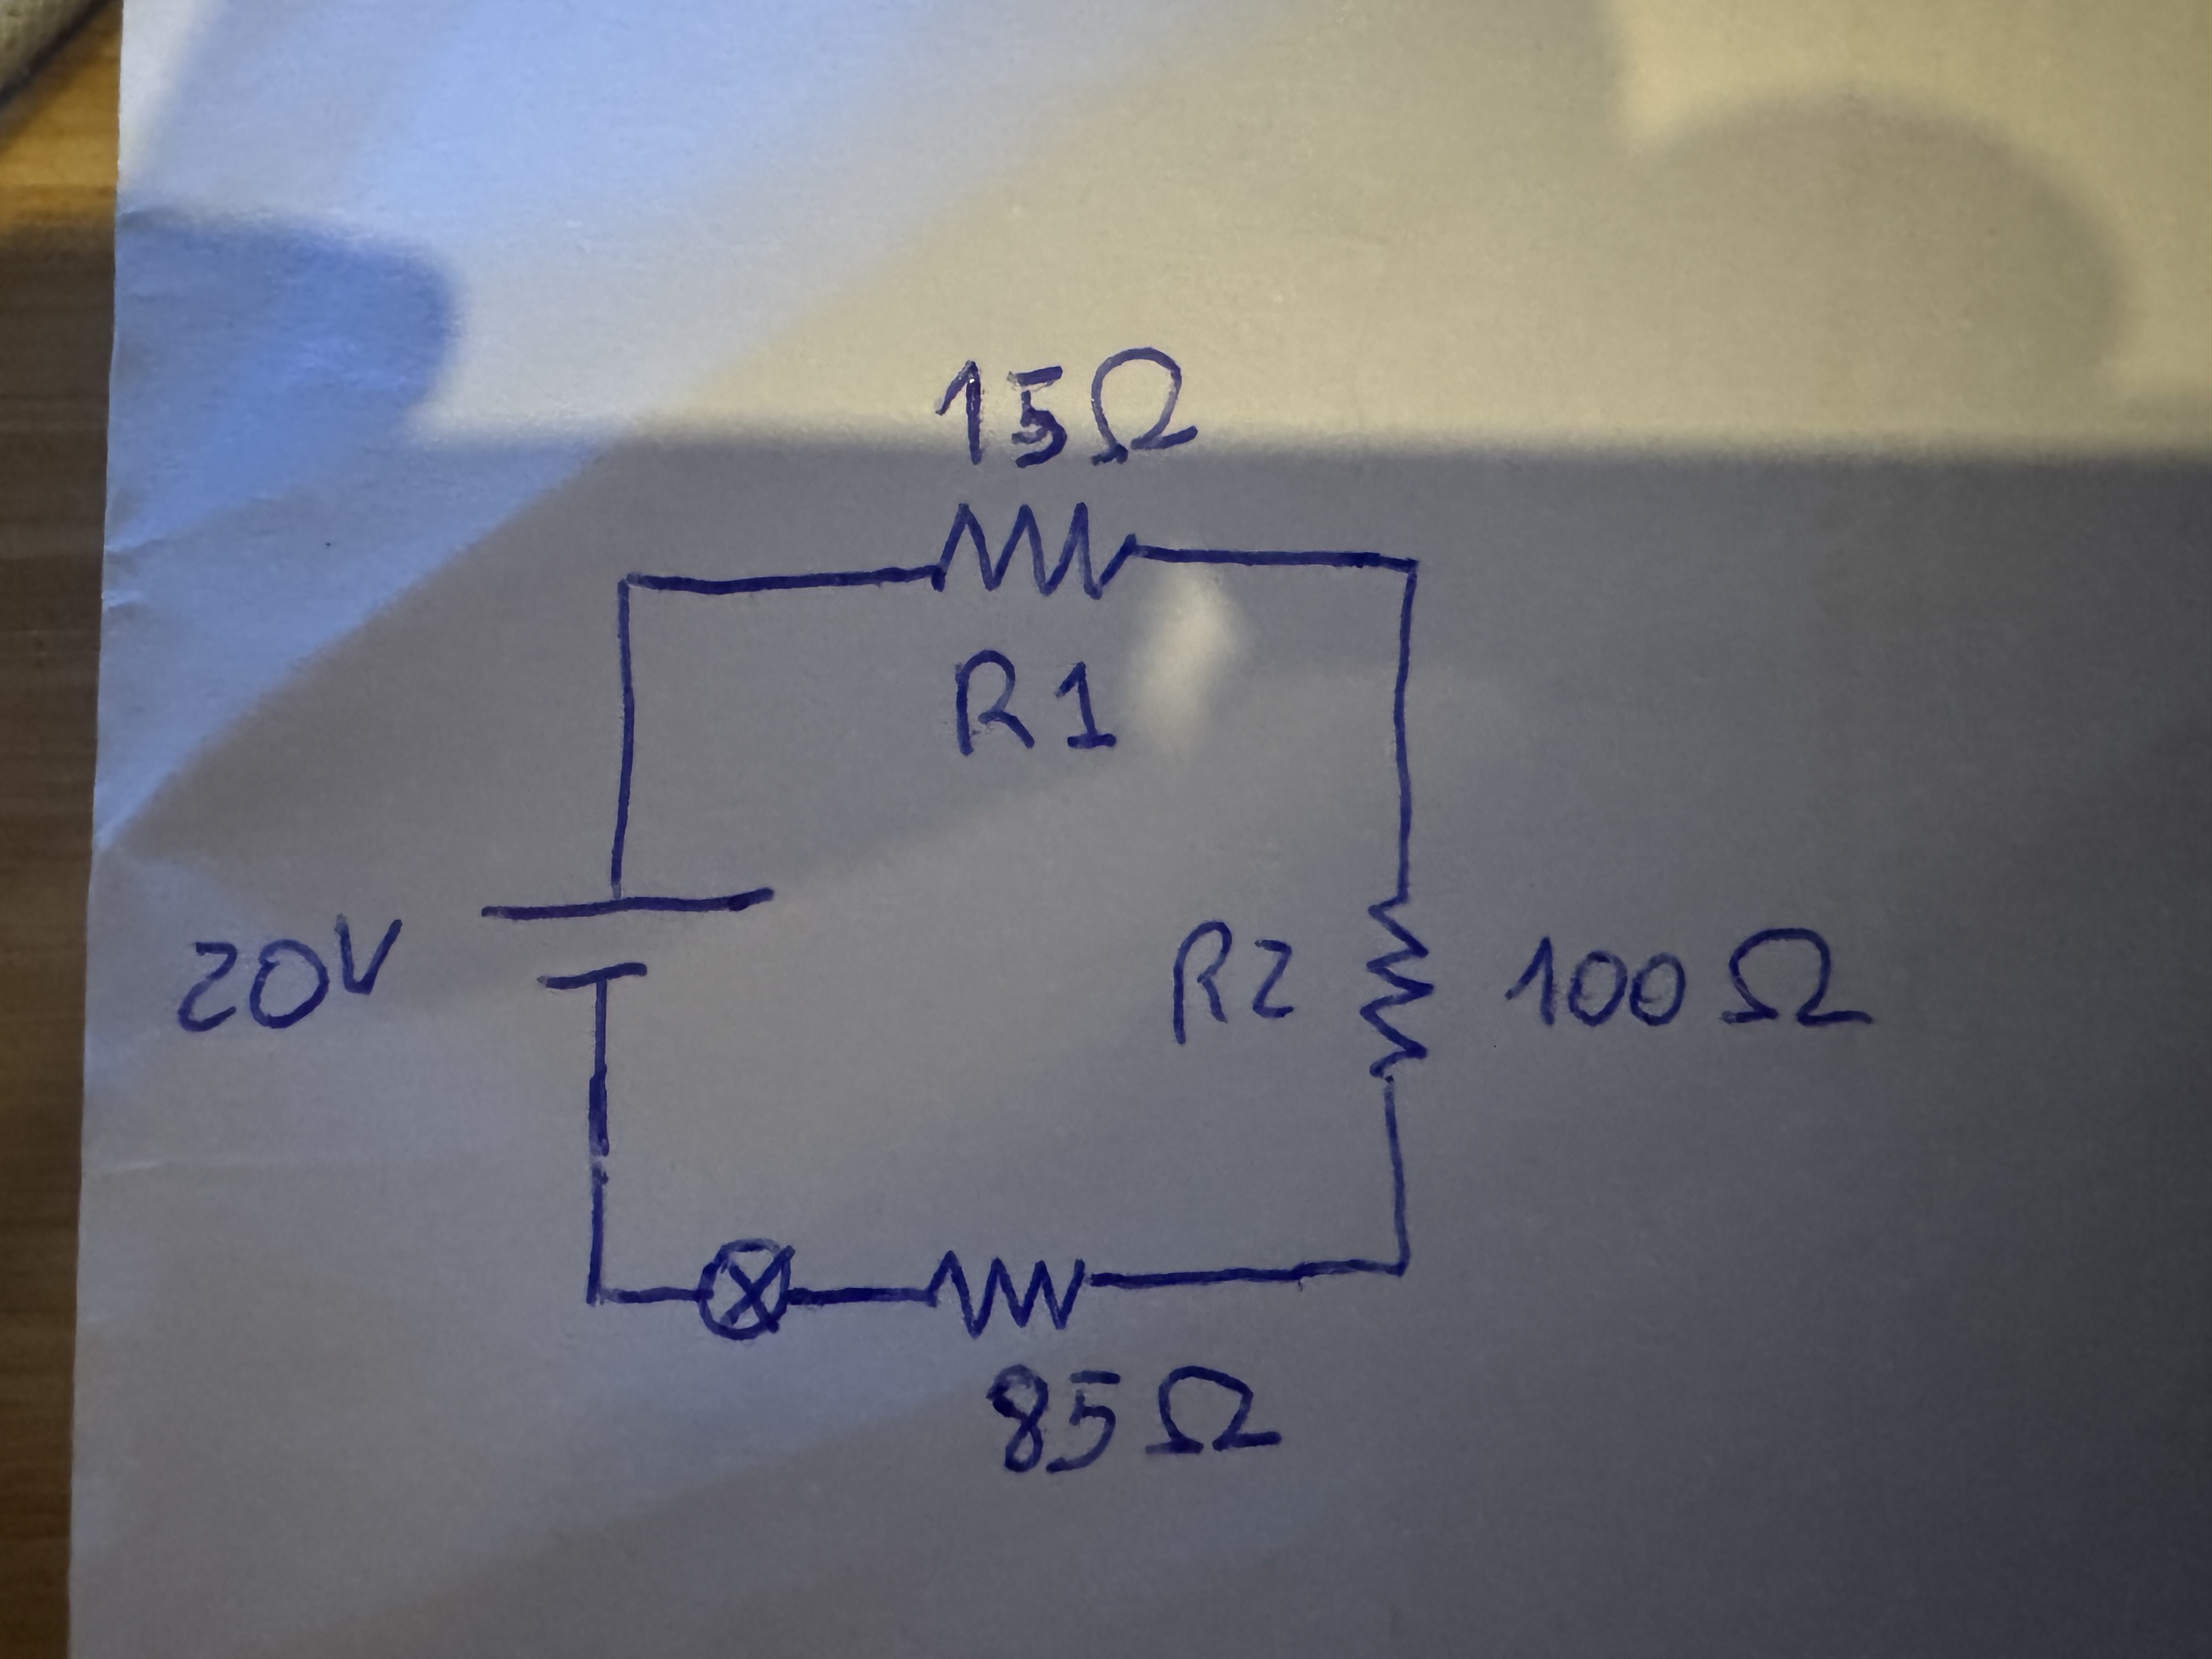 15Ω
R1
20V
R2
100Ω
85Ω